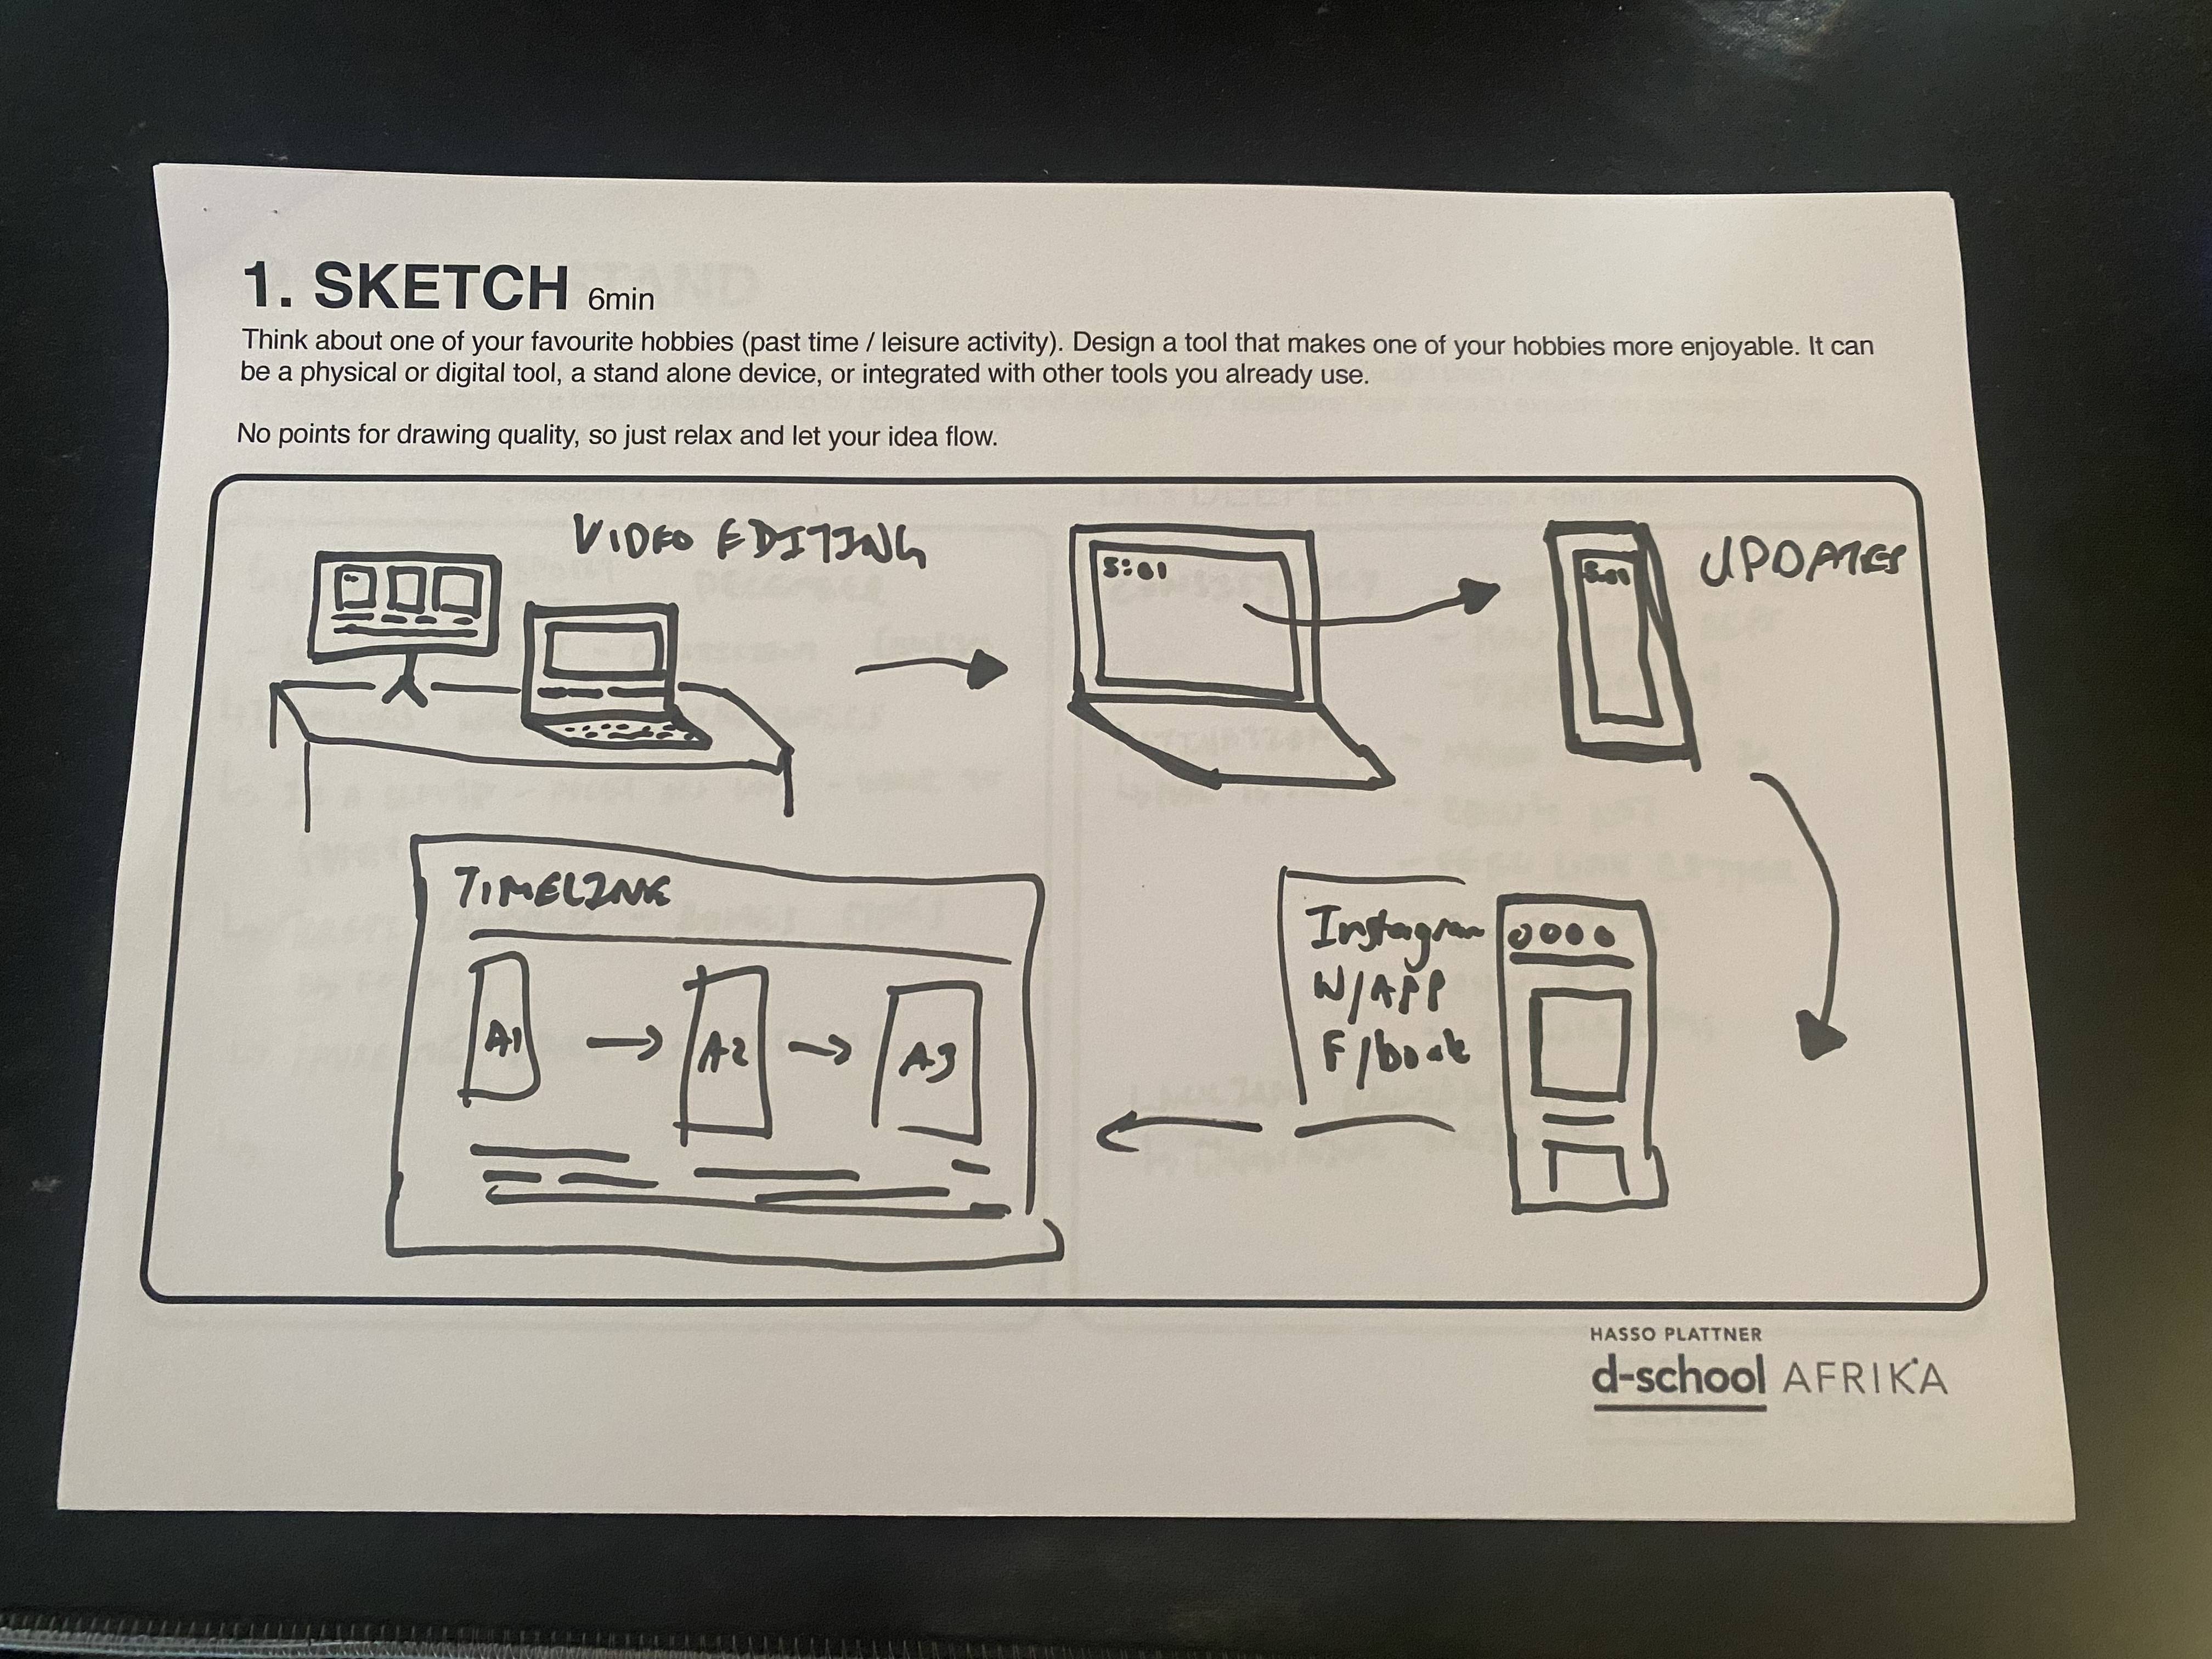 1. SKETCH 6min
Think about one of your favourite hobbies (past time / leisure activity). Design a tool that makes one of your hobbies more enjoyable. It can
be a physical or digital tool, a stand alone device, or integrated with other tools you already use.
No points for drawing quality, so just relax and let your idea flow.
VIDEO EDITING
5:01
5:01
UPDATES
TIMELINE
A1
A2
A3
Instagram
W/APP
F/book
HASSO PLATTNER
d-school AFRIKA